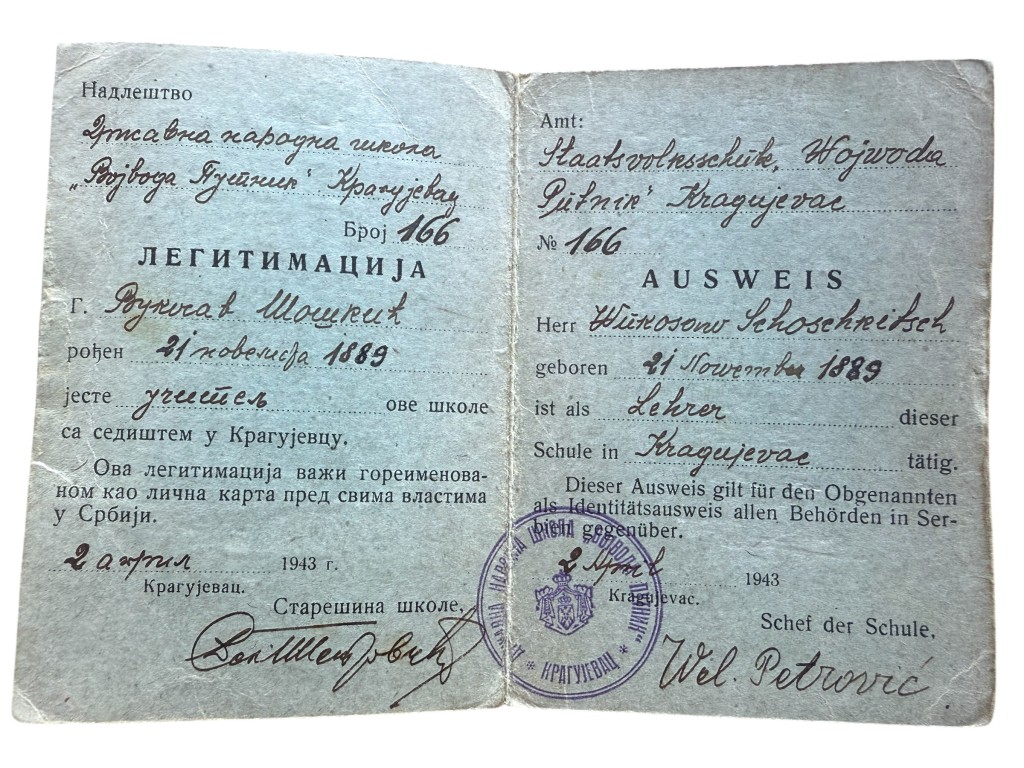 Надлештво
Државна народна школа
„Војвода Путник“ Крагујевац
Број 166
ЛЕГИТИМАЦИЈА
Г. Вукосав Шошкић
рођен 21 новембра 1889
јесте учитељ ове школе
са седиштем у Крагујевцу.
Ова легитимација важи гореименова-
ном као лична карта пред свима властима
у Србији.
2 април 1943 г.
Крагујевац.
Старешина школе,
Amt:
Staatsvolksschule, Wojwoda
Putnik“ Kragujevac
№ 166
AUSWEIS
Herr Wukosaw Schoschkitsch
geboren 21 November 1889
ist als Lehrer dieser
Schule in Kragujevac tätig.
Dieser Ausweis gilt für den Obgenannten
als Identitätsausweis allen Behörden in Ser-
bien gegenüber.
2 April 1943
Kragujevac.
Schef der Schule,
Wel. Petrović
ДРЖАВНА НАРОДНА ШКОЛА „ВОЈВОДА ПУТНИК“ * КРАГУЈЕВАЦ *